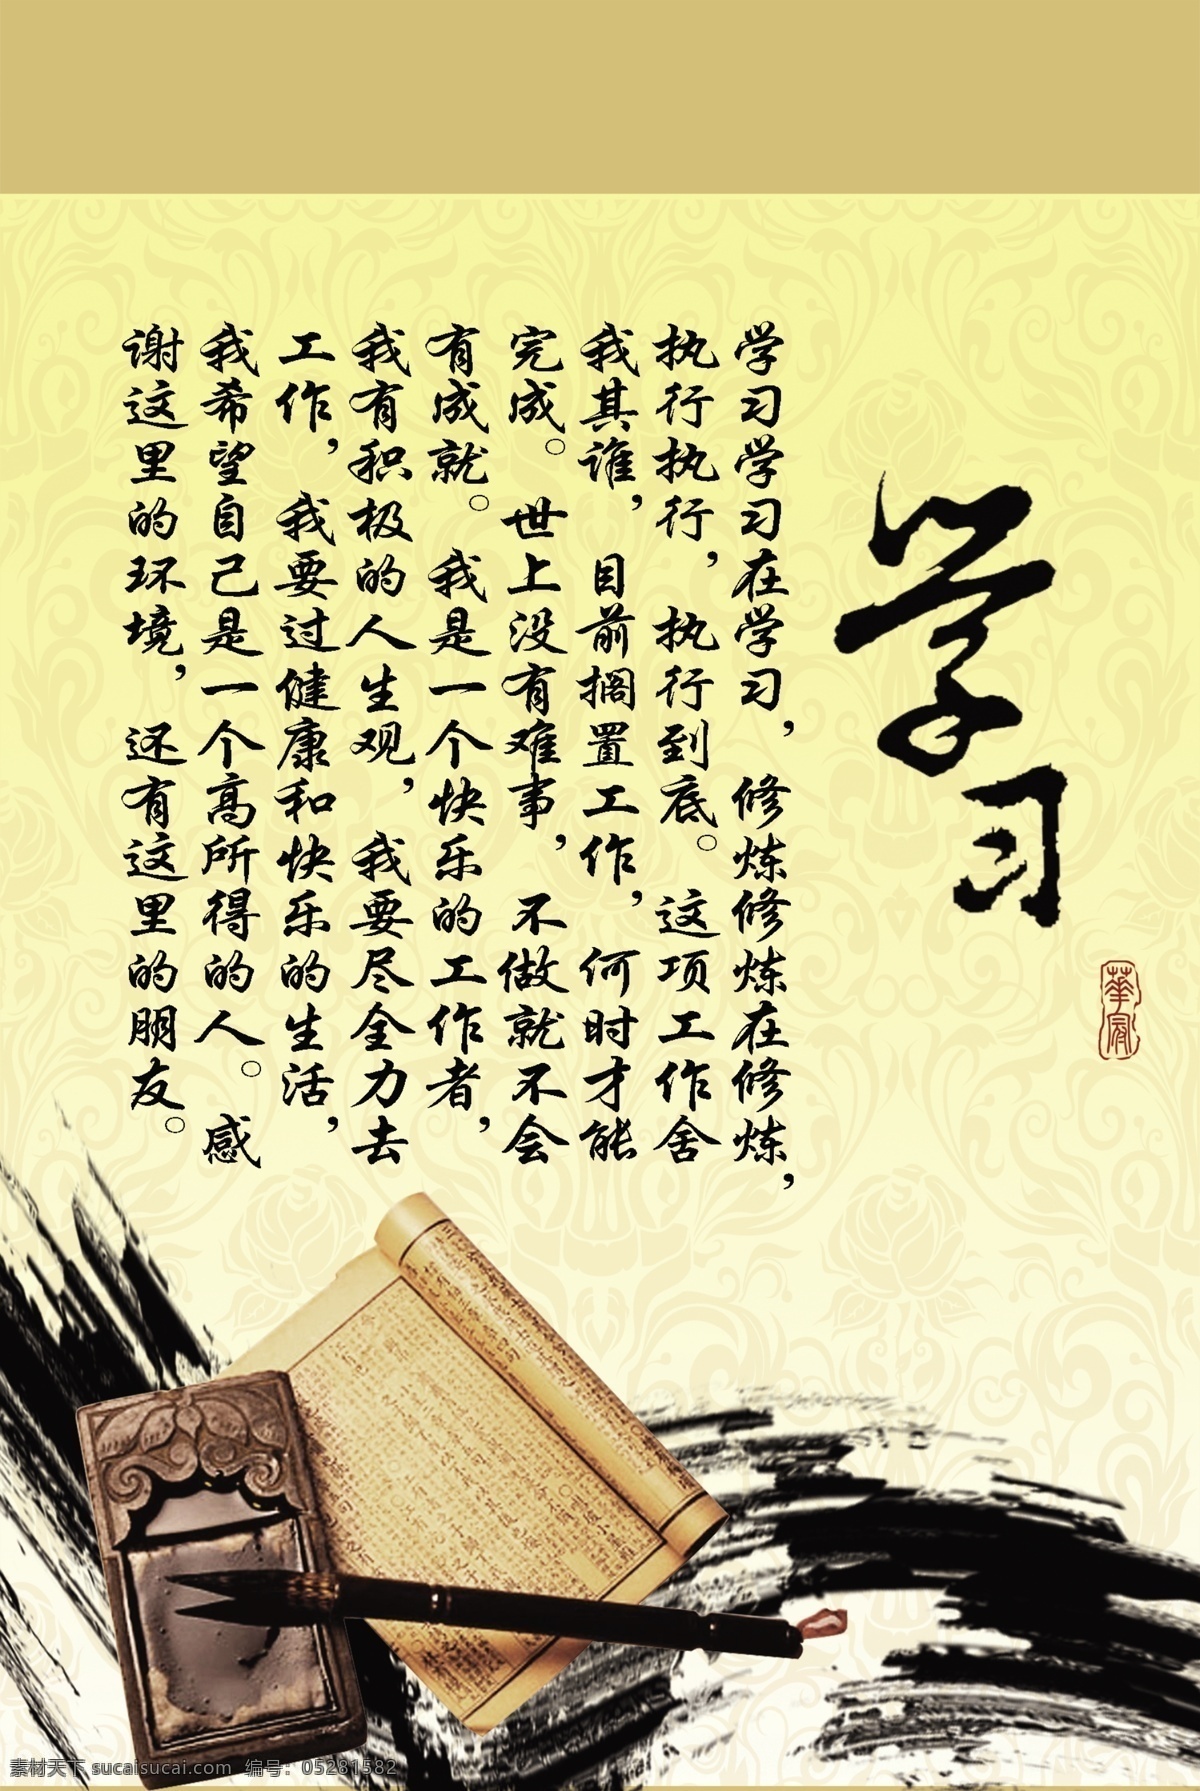 学习
学习学习在学习，修炼修炼在修炼，
执行执行，执行到底。这项工作舍
我其谁，目前搁置工作，何时才能
完成。世上没有难事，不做就不会
有成就。我是一个快乐的工作者，
我有积极的人生观，我要尽全力去
工作，我要过健康和快乐的生活，
我希望自己是一个高所得的人。感
谢这里的环境，还有这里的朋友。
素材天下 sucaisucai.com 编号：05281582